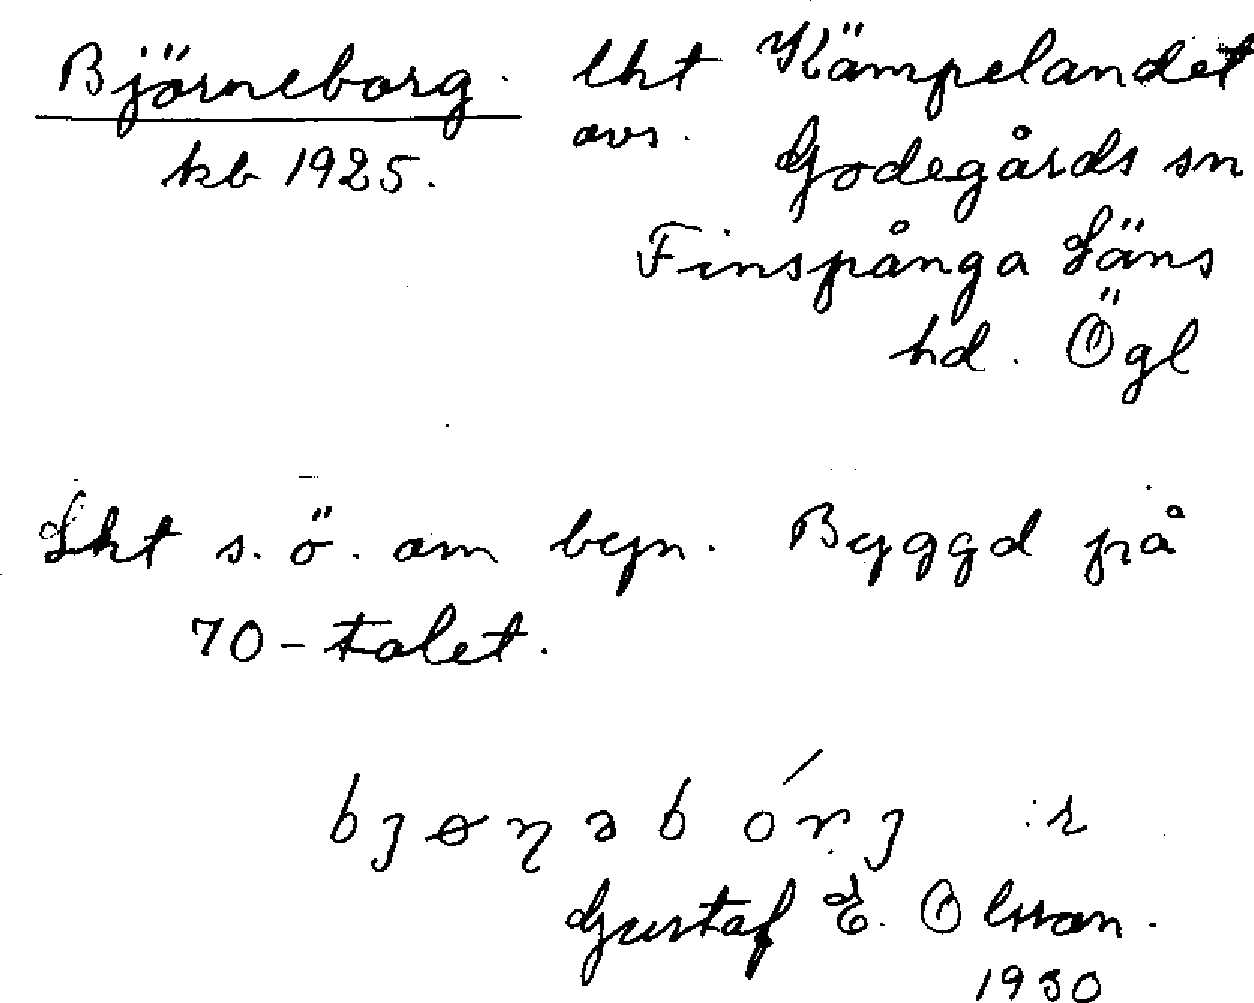 Björneborg. lht Kämpelandet
kb 1925. avs. Godegårds sn
Finspånga Läns
hd. Ögl
Lht s.ö. om byn. Byggd på
70-talet.
bjøŋəbórj :r
Gustaf E. Olsson.
1930